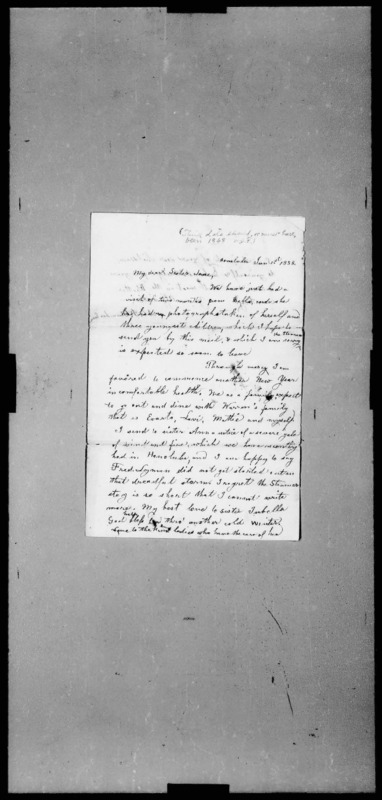 Honolulu Jan 1st 1882.
My dear Sister Jane,
We have just had a
visit of two months from Bella, and she
has had a photograph taken of herself and
three youngest children, which I hope to
send you by this mail,
is expected so soon to leave
Through mercy I am
favored to commence another New Year
in comfortable health. We as a family expect
to go out and dine with Warren's family
that is Levi, Mother and myself
I send to sister Anna a notice of a severe gale
of wind and fire, which we have recently
had in Honolulu, and I am happy to say
Fred Lyman did not get started out in
that dreadful storm I regret the Steamer
stay is so short that I cannot write
more. My best love to sister Isabella
God help thro' another cold Winter,
Love to the ladies who have the care of